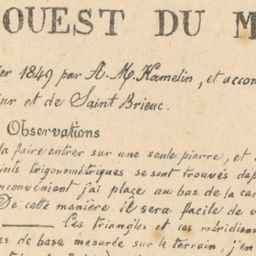 OUEST DU M
er 1849 par A. M. Hamelin, et accom
ur et de Saint Brieuc.
Observations
la faire entrer sur une seule pierre, et
ints trigonométriques se sont trouvés dep
inconvénient j'ai placé au bas de la car
De cette manière il sera facile de v
Ces triangles et ces méridien
es de base mesurée sur le terrain, j'en